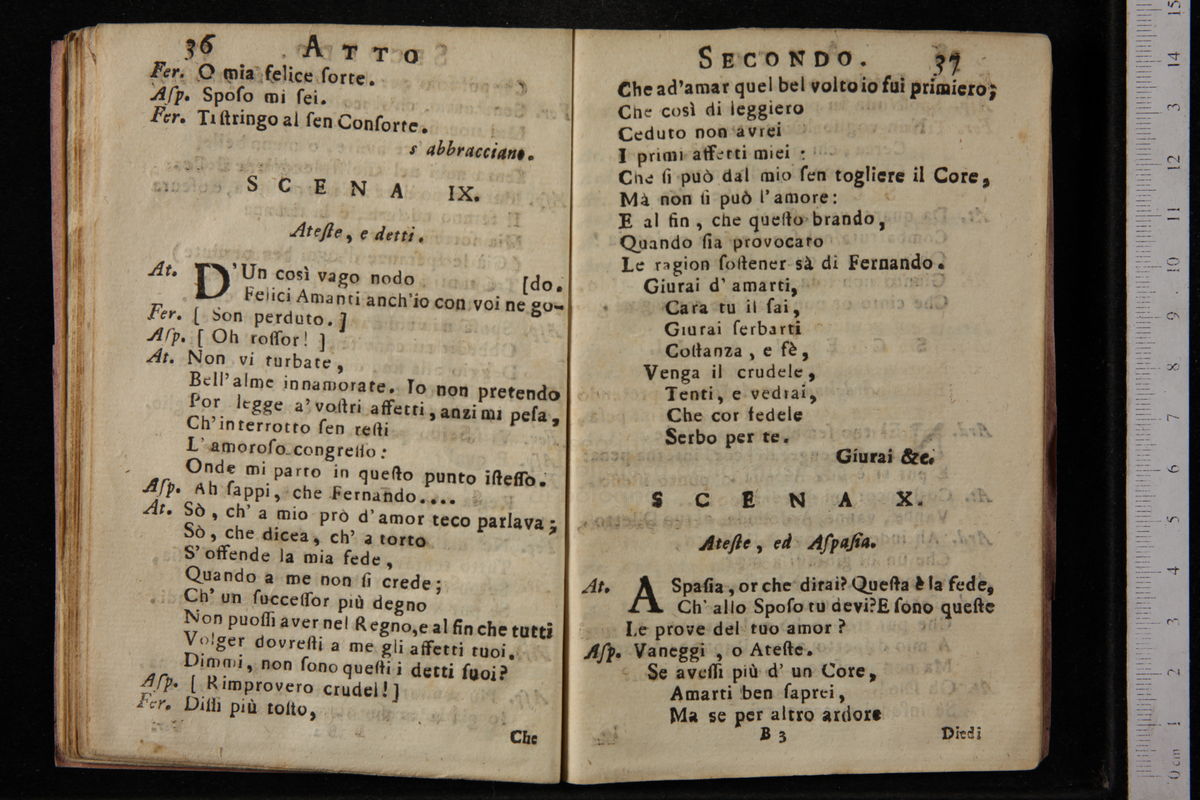 36 ATTO
Fer. O mia felice ſorte.
Aſp. Spoſo mi ſei.
Fer. Ti ſtringo al ſen Conſorte.
s' abbracciano.
SCENA IX.
Ateſte, e detti.
At. D'Un così vago nodo [do.
Felici Amanti anch'io con voi ne go-
Fer. [ Son perduto. ]
Aſp. [ Oh roſſor! ]
At. Non vi turbate,
Bell'alme innamorate. Io non pretendo
Por legge a' voſtri affetti, anzi mi peſa,
Ch'interrotto ſen reſti
L' amoroſo congreſſo:
Onde mi parto in queſto punto iſteſſo.
Aſp. Ah ſappi, che Fernando....
At. Sò, ch' a mio prò d'amor teco parlava;
Sò, che dicea, ch' a torto
S' offende la mia fede,
Quando a me non ſi crede;
Ch' un ſucceſſor più degno
Non puoſſi aver nel Regno, e al fin che tutti
Volger dovreſti a me gli affetti tuoi.
Dimmi, non ſono queſti i detti ſuoi?
Aſp. [ Rimprovero crudel! ]
Fer. Diſſi più toſto,
Che
SECONDO. 37
Che ad'amar quel bel volto io fui primiero;
Che così di leggiero
Ceduto non avrei
I primi affetti miei:
Che ſi può dal mio ſen togliere il Core,
Mà non ſi può l'amore:
E al fin, che queſto brando,
Quando ſia provocato
Le ragion ſoſtener sà di Fernando.
Giurai d' amarti,
Cara tu il ſai,
Giurai ſerbarti
Coſtanza, e fè,
Venga il crudele,
Tenti, e vedrai,
Che cor fedele
Serbo per te.
Giurai &c.
SCENA X.
Ateſte, ed Aſpaſia.
At. ASpaſia, or che dirai? Queſta è la fede,
Ch' allo Spoſo tu devi? E ſono queſte
Le prove del tuo amor?
Aſp. Vaneggi, o Ateſte.
Se aveſſi più d' un Core,
Amarti ben ſaprei,
Ma se per altro ardore
B 3 Diedi
0 cm 1 2 3 4 5 6 7 8 9 10 11 12 13 14 15